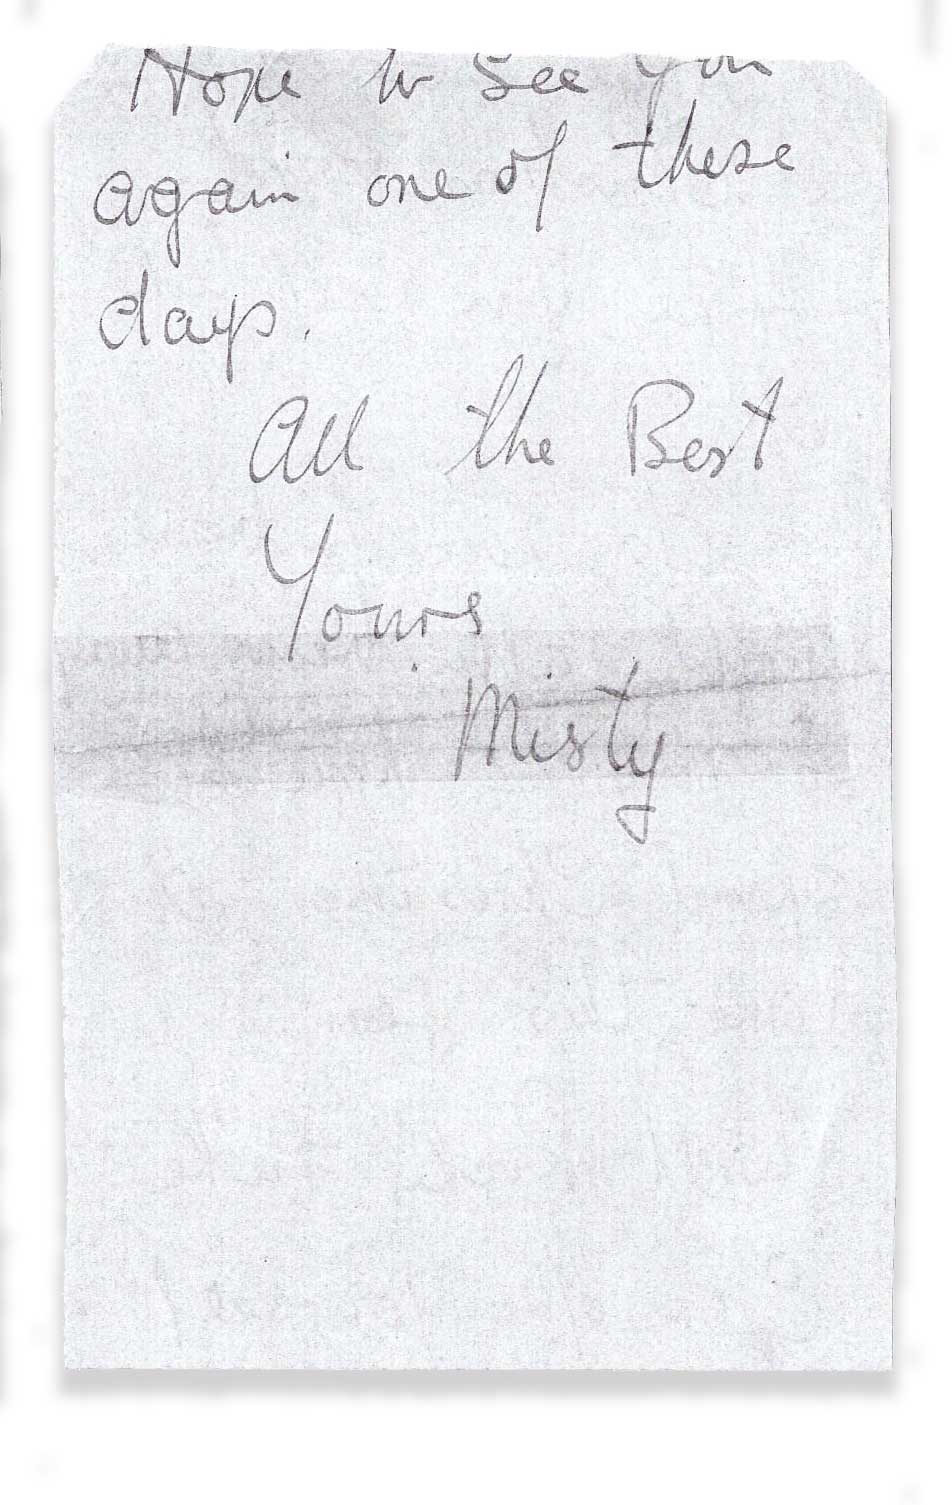 Hope to see you
again one of these
days.
All the Best
Yours
Misty